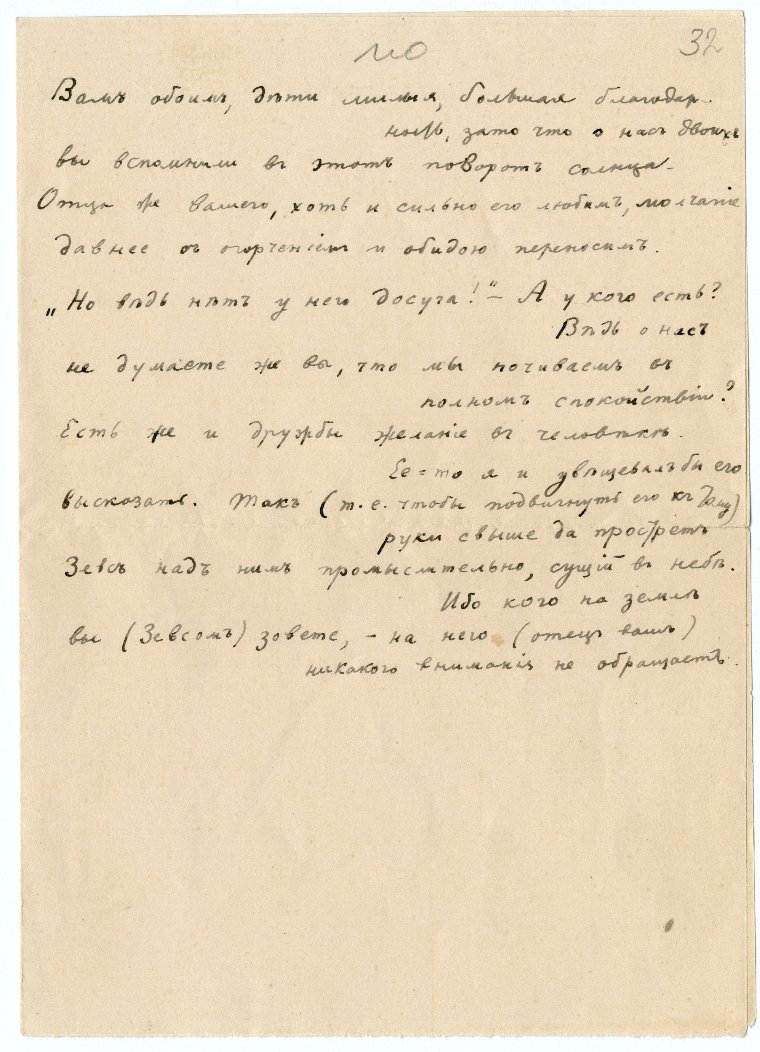 32
Вамъ обоимъ, дѣти милыя, большая благодар-
ность, зато что о насъ двоихъ
вы вспомнили въ этотъ поворотъ солнца.
Отца же вашего, хоть и сильно его любимъ, молчаніе
давнее съ огорченіемъ и обидою переносимъ.
„Но вѣдь нѣтъ у него досуга!" – А у кого есть?
Вѣдь о насъ
не думаете же вы, что мы почиваемъ въ
полномъ спокойствіи?
Есть же и дружбы желаніе въ человѣкѣ.
Ее=то я и увѣщевалъ бы его
высказать. Такъ (т.е. чтобы подвигнуть его къ тому)
руки свыше да простретъ
Зевсъ надъ нимъ промыслительно, сущій въ небѣ.
Ибо кого на землѣ
вы (Зевсомъ) зовете, – на него (отецъ вашъ)
никакого вниманія не обращаетъ.